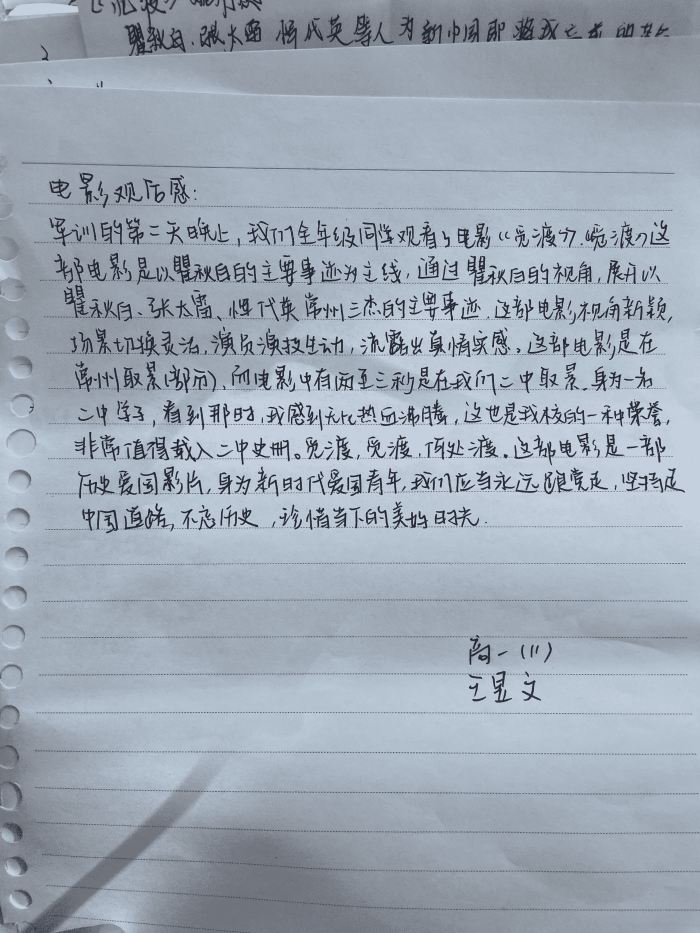 瞿秋白、张太雷 恽代英等人为新中国
电影观后感:
军训的第二天晚上，我们全年级同学观看了电影《觅渡》。《觅渡》这
部电影是以瞿秋白的主要事迹为主线，通过瞿秋白的视角，展开以
瞿秋白、张太雷、恽代英常州三杰的主要事迹。这部电影视角新颖，
场景切换灵活，演员演技生动，流露出真情实感。这部电影是在
常州取景(部分)，而电影中有两至三秒是在我们二中取景。身为一名
二中学子，看到那时，我感到无比热血沸腾，这也是我校的一种荣誉，
非常值得载入二中史册。觅渡，觅渡，何处渡。这部电影是一部
历史爱国影片，身为新时代爱国青年，我们应当永远跟党走，坚持走
中国道路，不忘历史，珍惜当下的美好时光.
高一(11)
王昱文